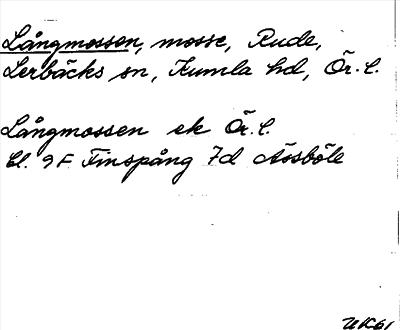 Långmossen, mosse, Rude,
Lerbäcks sn, Kumla hd, Ör. l.
Långmossen ek Ör. l.
bl. 9F Finspång 7d Åösböle